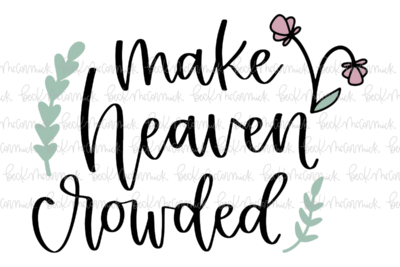 make
heaven
crowded